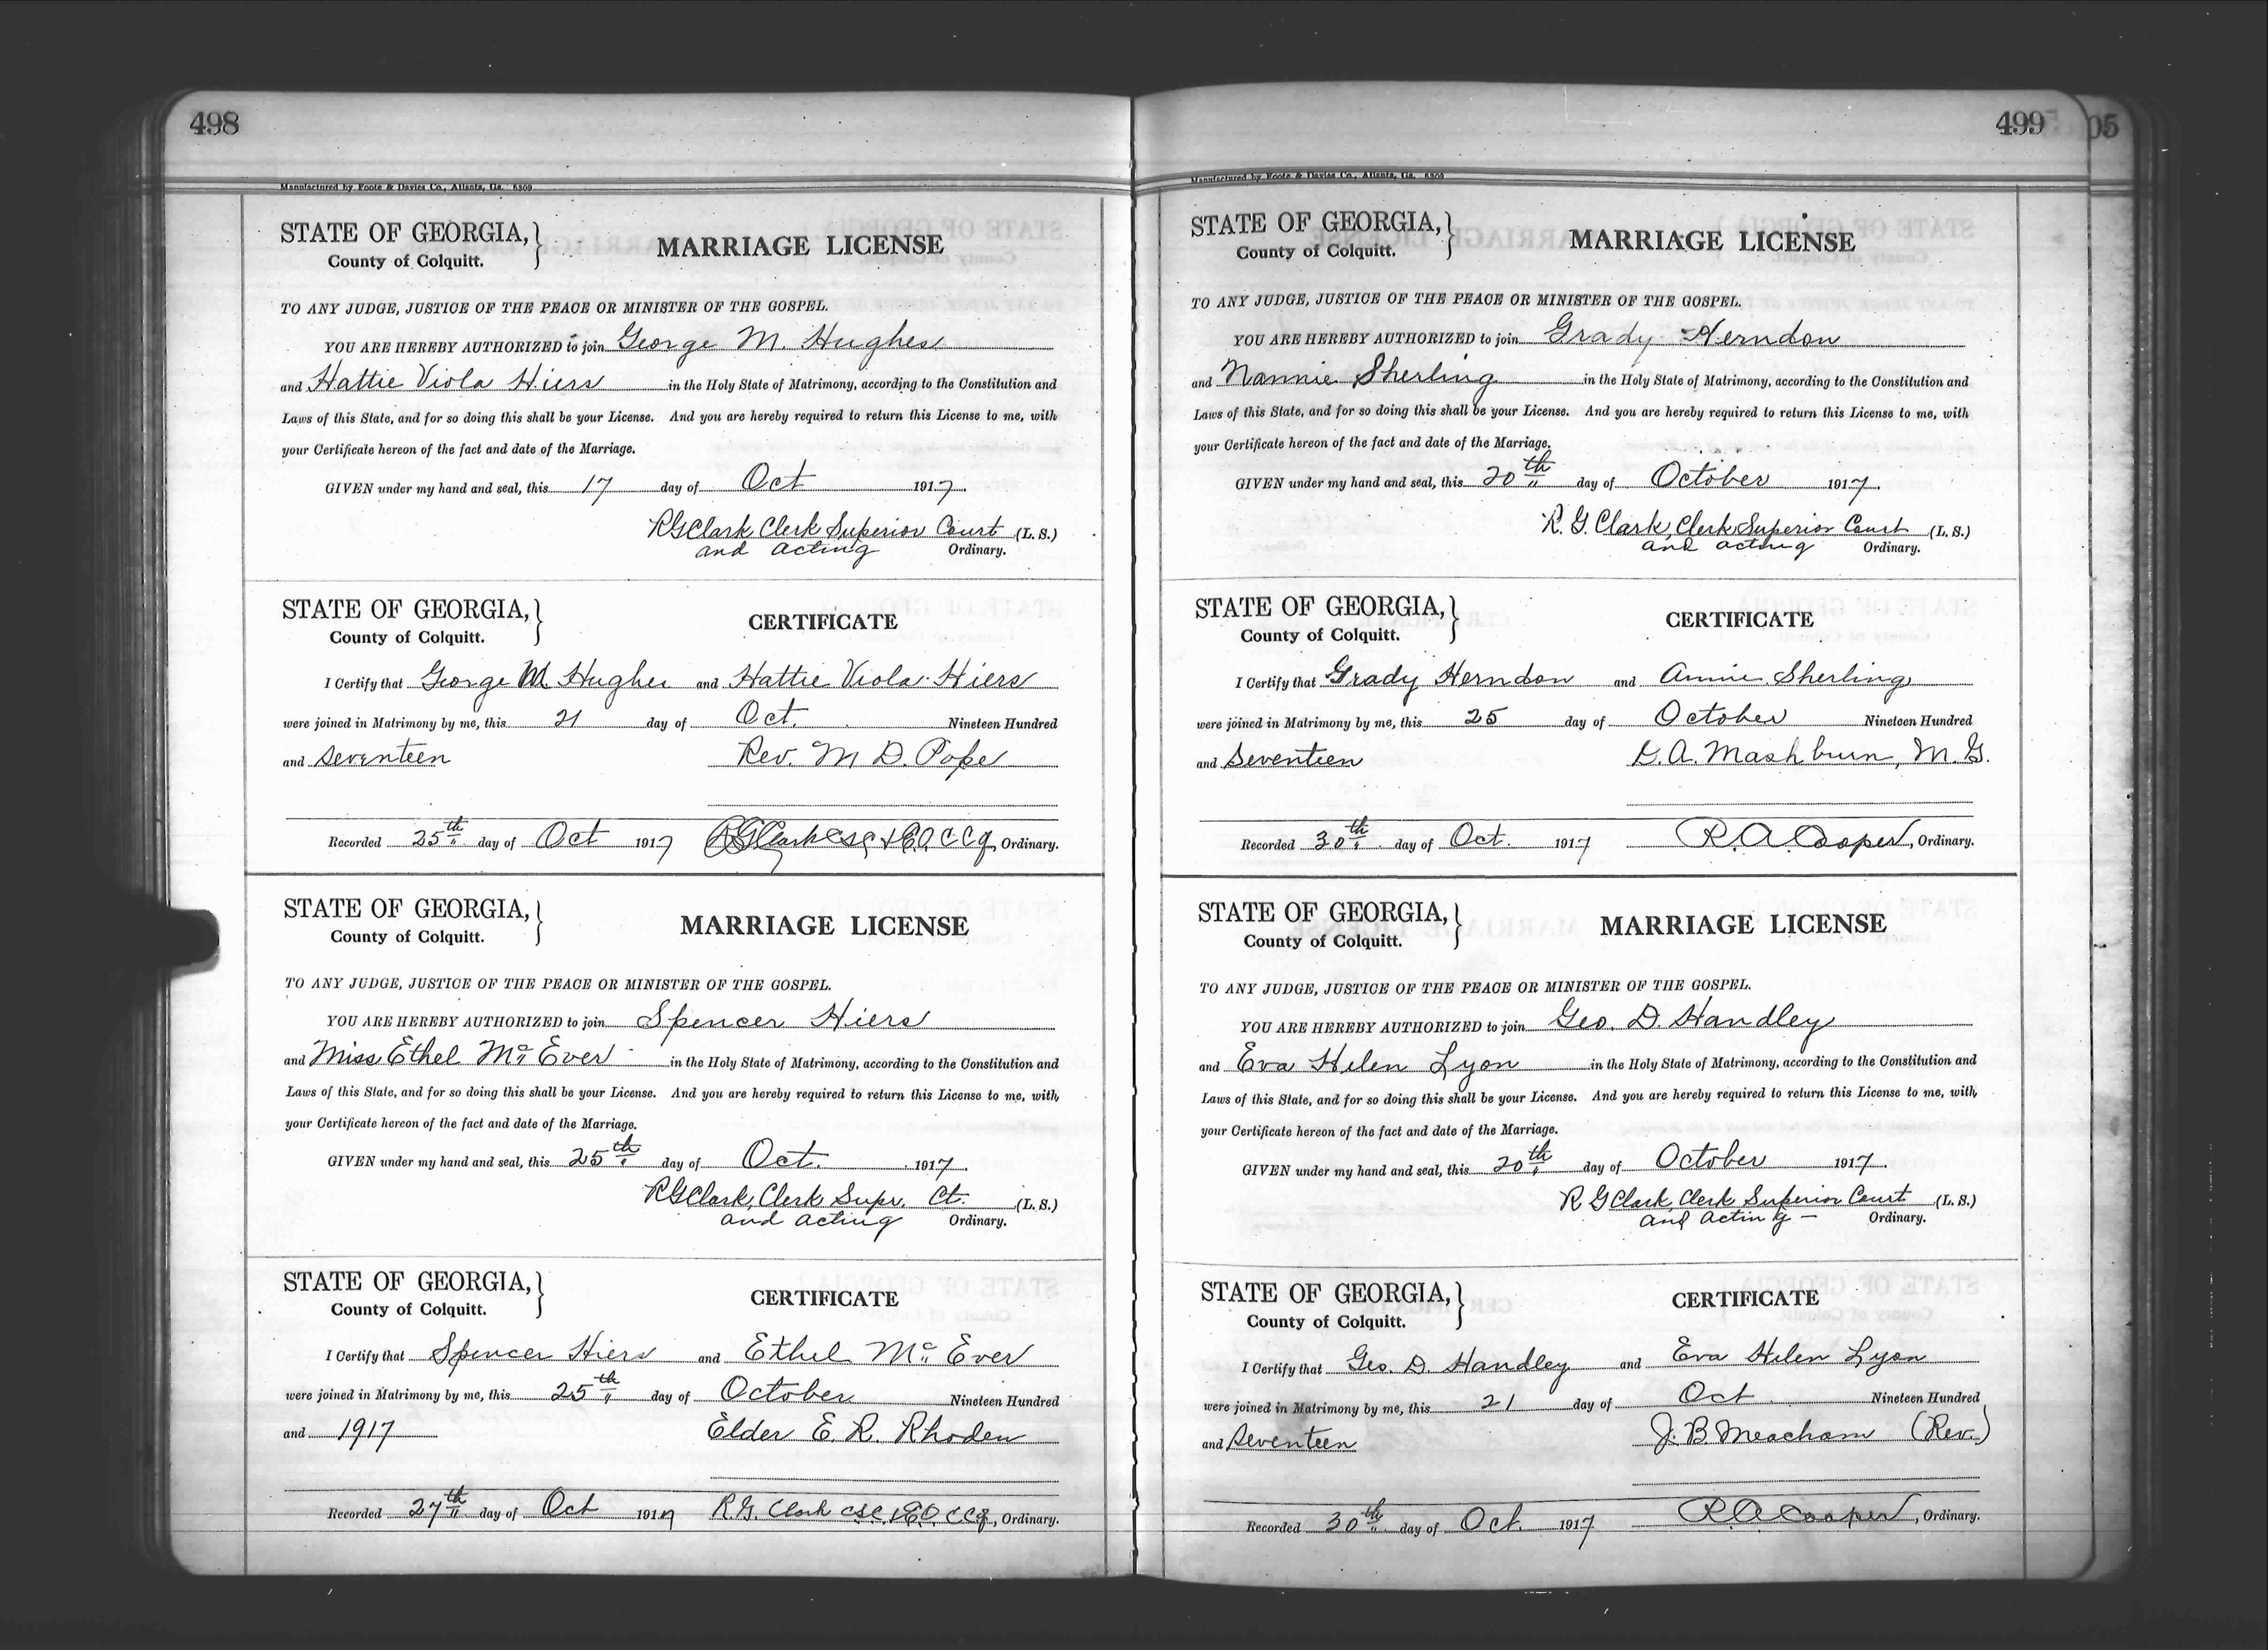 498
Manufactured by Foote & Davies Co., Atlanta, Ga. 6309
STATE OF GEORGIA,
County of Colquitt.
MARRIAGE LICENSE
TO ANY JUDGE, JUSTICE OF THE PEACE OR MINISTER OF THE GOSPEL.
YOU ARE HEREBY AUTHORIZED to join George M. Hughes
and Hattie Viola Hiers in the Holy State of Matrimony, according to the Constitution and
Laws of this State, and for so doing this shall be your License. And you are hereby required to return this License to me, with
your Certificate hereon of the fact and date of the Marriage.
GIVEN under my hand and seal, this 17 day of Oct 1917.
R G Clark, Clerk Superior Court (L. S.)
and acting Ordinary.
STATE OF GEORGIA,
County of Colquitt.
CERTIFICATE
I Certify that George M. Hughes and Hattie Viola Hiers
were joined in Matrimony by me, this 21 day of Oct. Nineteen Hundred
and seventeen Rev. M D. Pope
Recorded 25th day of Oct 1917 R G Clark CSC & EO CCQ, Ordinary.
STATE OF GEORGIA,
County of Colquitt.
MARRIAGE LICENSE
TO ANY JUDGE, JUSTICE OF THE PEACE OR MINISTER OF THE GOSPEL.
YOU ARE HEREBY AUTHORIZED to join Spencer Hiers
and Miss Ethel Mc Ever in the Holy State of Matrimony, according to the Constitution and
Laws of this State, and for so doing this shall be your License. And you are hereby required to return this License to me, with
your Certificate hereon of the fact and date of the Marriage.
GIVEN under my hand and seal, this 25th day of Oct. 1917.
R G Clark, Clerk Supr. Ct. (L. S.)
and acting Ordinary.
STATE OF GEORGIA,
County of Colquitt.
CERTIFICATE
I Certify that Spencer Hiers and Ethel Mc Ever
were joined in Matrimony by me, this 25th day of October Nineteen Hundred
and 1917 Elder E. R. Rhoden
Recorded 27th day of Oct 1917 R. G. Clark CSC & EO CCQ, Ordinary.
499
05
Manufactured by Foote & Davies Co., Atlanta, Ga. 6309
STATE OF GEORGIA,
County of Colquitt.
MARRIAGE LICENSE
TO ANY JUDGE, JUSTICE OF THE PEACE OR MINISTER OF THE GOSPEL.
YOU ARE HEREBY AUTHORIZED to join Grady Herndon
and Nannie Sherling in the Holy State of Matrimony, according to the Constitution and
Laws of this State, and for so doing this shall be your License. And you are hereby required to return this License to me, with
your Certificate hereon of the fact and date of the Marriage.
GIVEN under my hand and seal, this 20th day of October 1917.
R. G. Clark, Clerk Superior Court (L. S.)
and acting Ordinary.
STATE OF GEORGIA,
County of Colquitt.
CERTIFICATE
I Certify that Grady Herndon and Annie Sherling
were joined in Matrimony by me, this 25 day of October Nineteen Hundred
and Seventeen D. A. Mashburn, M. G.
Recorded 30th day of Oct. 1917 R. A. Cooper, Ordinary.
STATE OF GEORGIA,
County of Colquitt.
MARRIAGE LICENSE
TO ANY JUDGE, JUSTICE OF THE PEACE OR MINISTER OF THE GOSPEL.
YOU ARE HEREBY AUTHORIZED to join Geo. D. Handley
and Eva Helen Lyon in the Holy State of Matrimony, according to the Constitution and
Laws of this State, and for so doing this shall be your License. And you are hereby required to return this License to me, with
your Certificate hereon of the fact and date of the Marriage.
GIVEN under my hand and seal, this 20th day of October 1917.
R G Clark, Clerk Superior Court (L. S.)
and acting - Ordinary.
STATE OF GEORGIA,
County of Colquitt.
CERTIFICATE
I Certify that Geo. D. Handley and Eva Helen Lyon
were joined in Matrimony by me, this 21 day of Oct Nineteen Hundred
and seventeen J. B. Meacham (Rev.)
Recorded 30th day of Oct. 1917 R A Cooper, Ordinary.